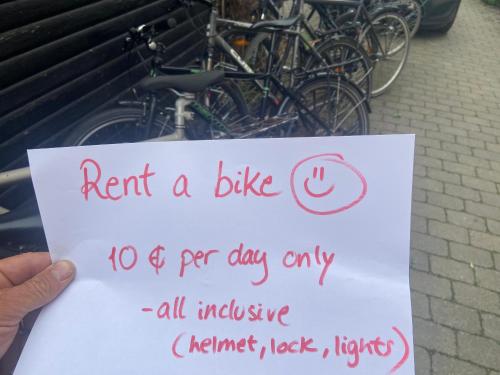 Rent a bike
10 ¢ per day only
-all inclusive
(helmet, lock, lights)